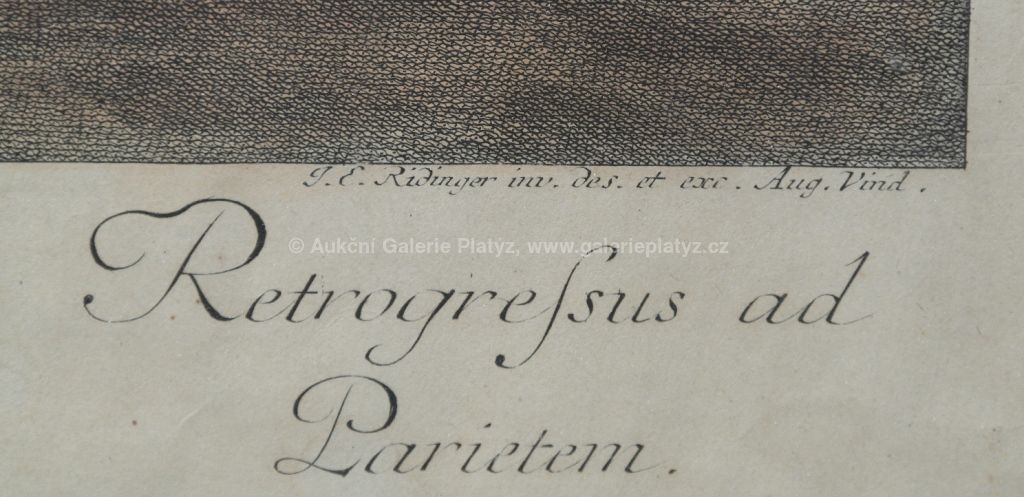 J. E. Ridinger inv. des. et exc. Aug. Vind.
© Aukční Galerie Platýz, www.galerieplatyz.cz
Retrogreſsus ad
Parietem.